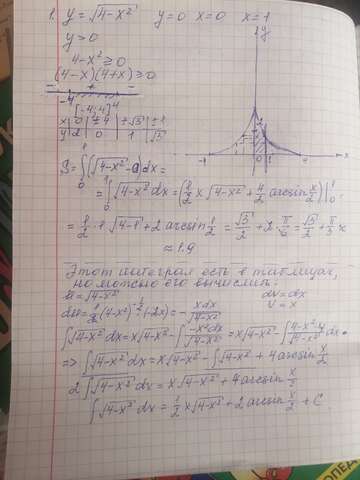 1. y = √4-x² y=0 x=0 x=1
y ≥ 0
4-x² ≥ 0
(4-x)(4+x) ≥ 0
- + -
-4 4
[-4; 4]
x | 0 | ±4 | ±√3 | ±1
y | 2 | 0 | 1 | √3
y
x
S = ∫₀¹ (√4-x² - 0) dx =
= ∫₀¹ √4-x² dx = (1/2 x √4-x² + 4/2 arcsin x/2) |₀¹ =
= 1/2 · 1 √4-1 + 2 arcsin 1/2 = √3/2 + 2 · π/6 = √3/2 + π/3 ≈
≈ 1.9
Этот интеграл есть в таблицах,
но можно его вычислить:
u = √4-x² dv = dx
du = 1/2 (4-x²)^(-1/2) (-2x) = - xdx/√4-x² v = x
∫√4-x² dx = x√4-x² - ∫ -x²dx/√4-x² = x√4-x² - ∫ 4-x²-4/√4-x² dx =
=> ∫√4-x² dx = x√4-x² - ∫√4-x² + 4 arcsin x/2
2∫√4-x² dx = x√4-x² + 4 arcsin x/2
∫√4-x² dx = 1/2 x√4-x² + 2 arcsin x/2 + C